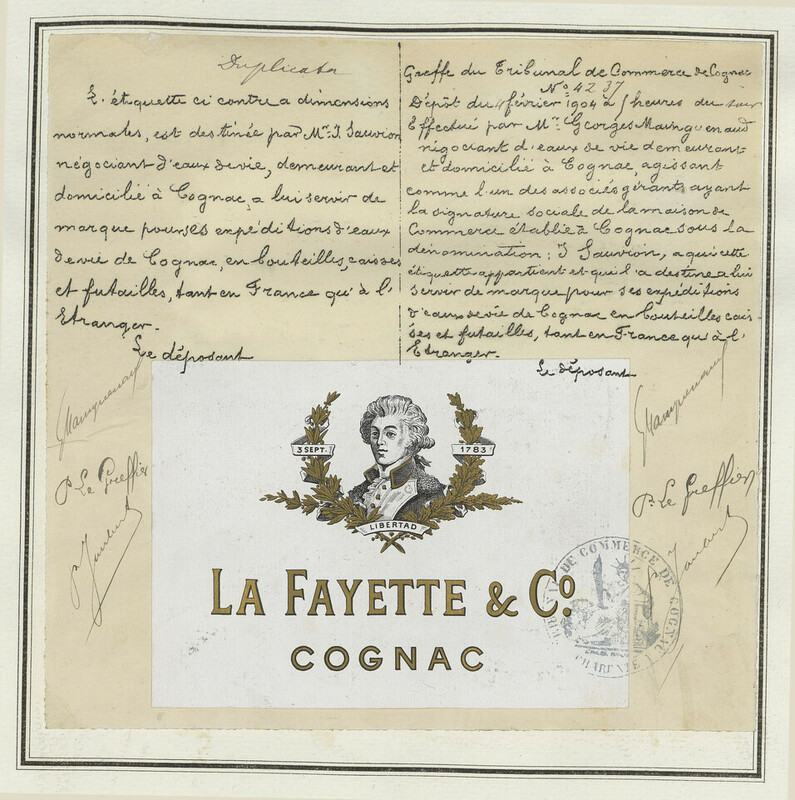 Duplicata
L'étiquette ci contre a dimensions
normales, est destinée par Mr. J. Sauvion
négociant d'eaux de vie, demeurant et
domicilié à Cognac, a lui servir de
marque pour ses expéditions d'eaux
de vie de Cognac, en bouteilles, caisses
et futailles, tant en France qu'à l'
Etranger.
Le déposant
P. Le Greffier
Greffe du Tribunal de Commerce de Cognac
No. 4237
Dépôt du 4 février 1904 à heures du soir
Effectué par Mr. Georges
négociant d'eaux de vie demeurant
et domicilié à Cognac, agissant
comme l'un des associés gérants ayant
la signature sociale de la maison de
Commerce établie à Cognac sous la
dénomination: J Sauvion, a qui cette
étiquette appartient et qui l'a destine a lui
servir de marque pour ses expéditions
d'eaux de vie de Cognac en bouteilles cais-
ses et futailles, tant en France qu'à l'
Etranger.
Le déposant
P. Le Greffier
3 SEPT. 1783
LIBERTAD
LA FAYETTE & Co.
COGNAC
DE COMMERCE DE COGNAC
CHARENTE